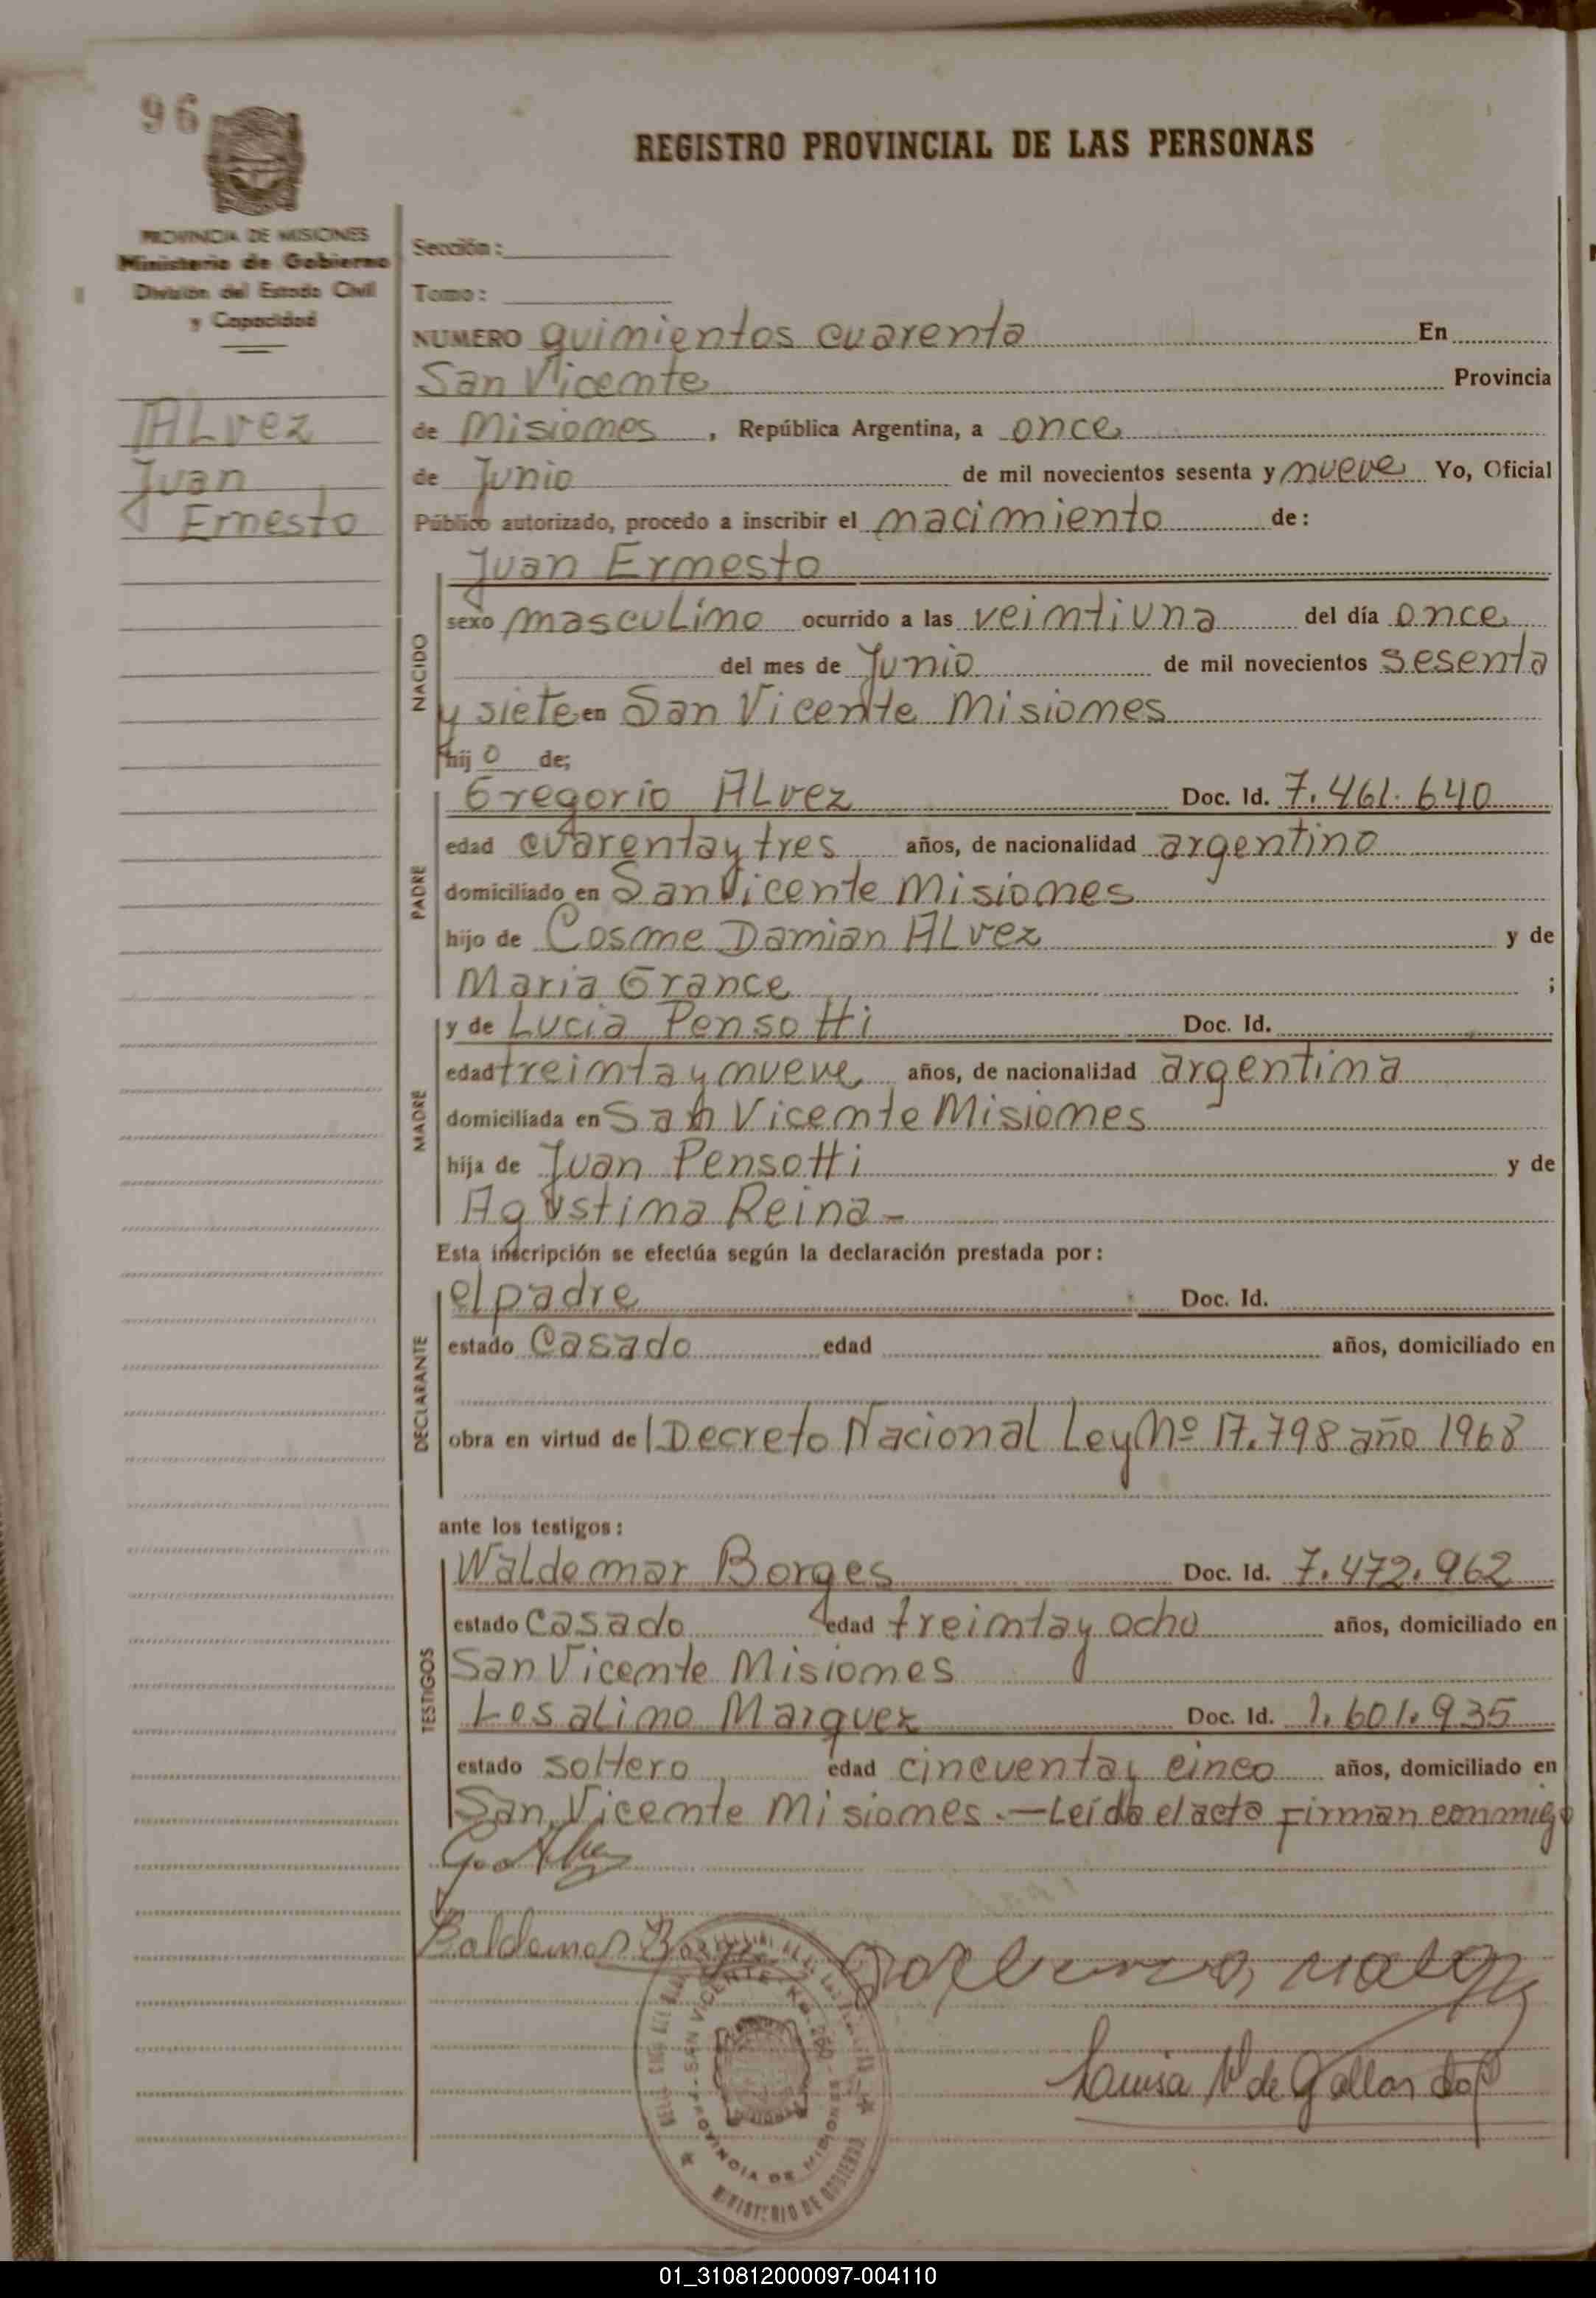 96
REGISTRO PROVINCIAL DE LAS PERSONAS
PROVINCIA DE MISIONES
Ministerio de Gobierno
División del Estado Civil
y Capacidad
ALvez
Juan
Ernesto
Sección:
Tomo:
NUMERO quinientos cuarenta En
San Vicente Provincia
de Misiones, República Argentina, a once
de Junio de mil novecientos sesenta y nueve Yo, Oficial
Público autorizado, procedo a inscribir el nacimiento de:
Juan Ernesto
NACIDO
sexo masculino ocurrido a las veintiuna del día once
del mes de Junio de mil novecientos sesenta
y siete en San Vicente Misiones
hij o de;
PADRE
Gregorio ALvez Doc. Id. 7.461.640
edad cuarenta y tres años, de nacionalidad argentino
domiciliado en San Vicente Misiones
hijo de Cosme Damian ALvez y de
Maria Grance ;
MADRE
y de Lucia Pensotti Doc. Id.
edad treinta y nueve años, de nacionalidad argentina
domiciliada en San Vicente Misiones
hija de Juan Pensotti y de
Agustina Reina -
Esta inscripción se efectúa según la declaración prestada por:
DECLARANTE
el padre Doc. Id.
estado Casado edad años, domiciliado en
obra en virtud del Decreto Nacional Ley Nº 17.798 año 1968
ante los testigos:
TESTIGOS
Waldemar Borges Doc. Id. 7.472.962
estado Casado edad treinta y ocho años, domiciliado en
San Vicente Misiones
Losalino Marquez Doc. Id. 1.601.935
estado soltero edad cincuenta y cinco años, domiciliado en
San Vicente Misiones.—Leída el acta firman conmigo
Baldemar
SAN VICENTE
PROVINCIA DE MISIONES
MINISTERIO DE GOBIERNO
Luisa de Gallardo
01_310812000097-004110